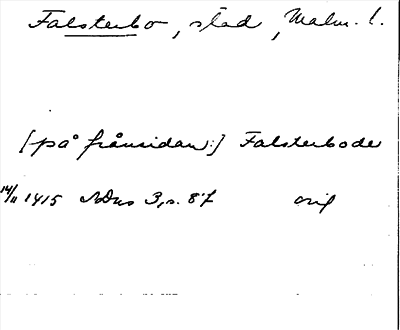 Falsterbo, stad, Malm. l.
[på frånsidan:] Falsterbode
14/11 1415 SDns 3, s. 87 orig